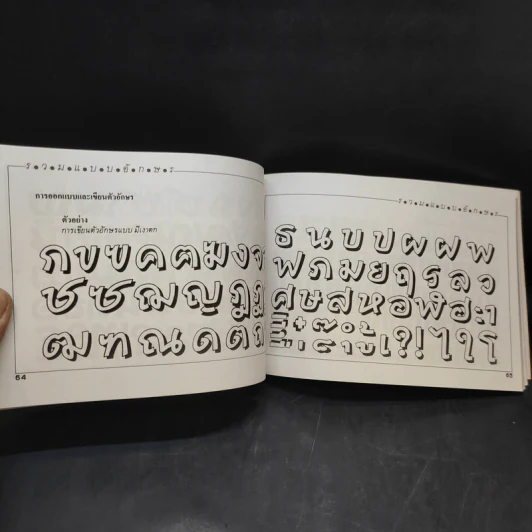 ร•ว•ม•แ•บ•บ•อั•ก•ษ•ร
การออกแบบและเขียนตัวอักษร
ตัวอย่าง
การเขียนตัวอักษรแบบ มีเงาตก
ก ข ฃ ค ฅ ฆ ง จ
ช ซ ฌ ญ ฎ ฏ
ฒ ฑ ณ ด ต ถ
64
ร•ว•ม•แ•บ•บ•อั•ก•ษ•ร
ธ น บ ป ผ ฝ พ
ฟ ภ ม ย ฤ ร ล ว
ศ ษ ส ห อ ฬ ฮ ะ า
เ ? ! ไ ใ โ
65